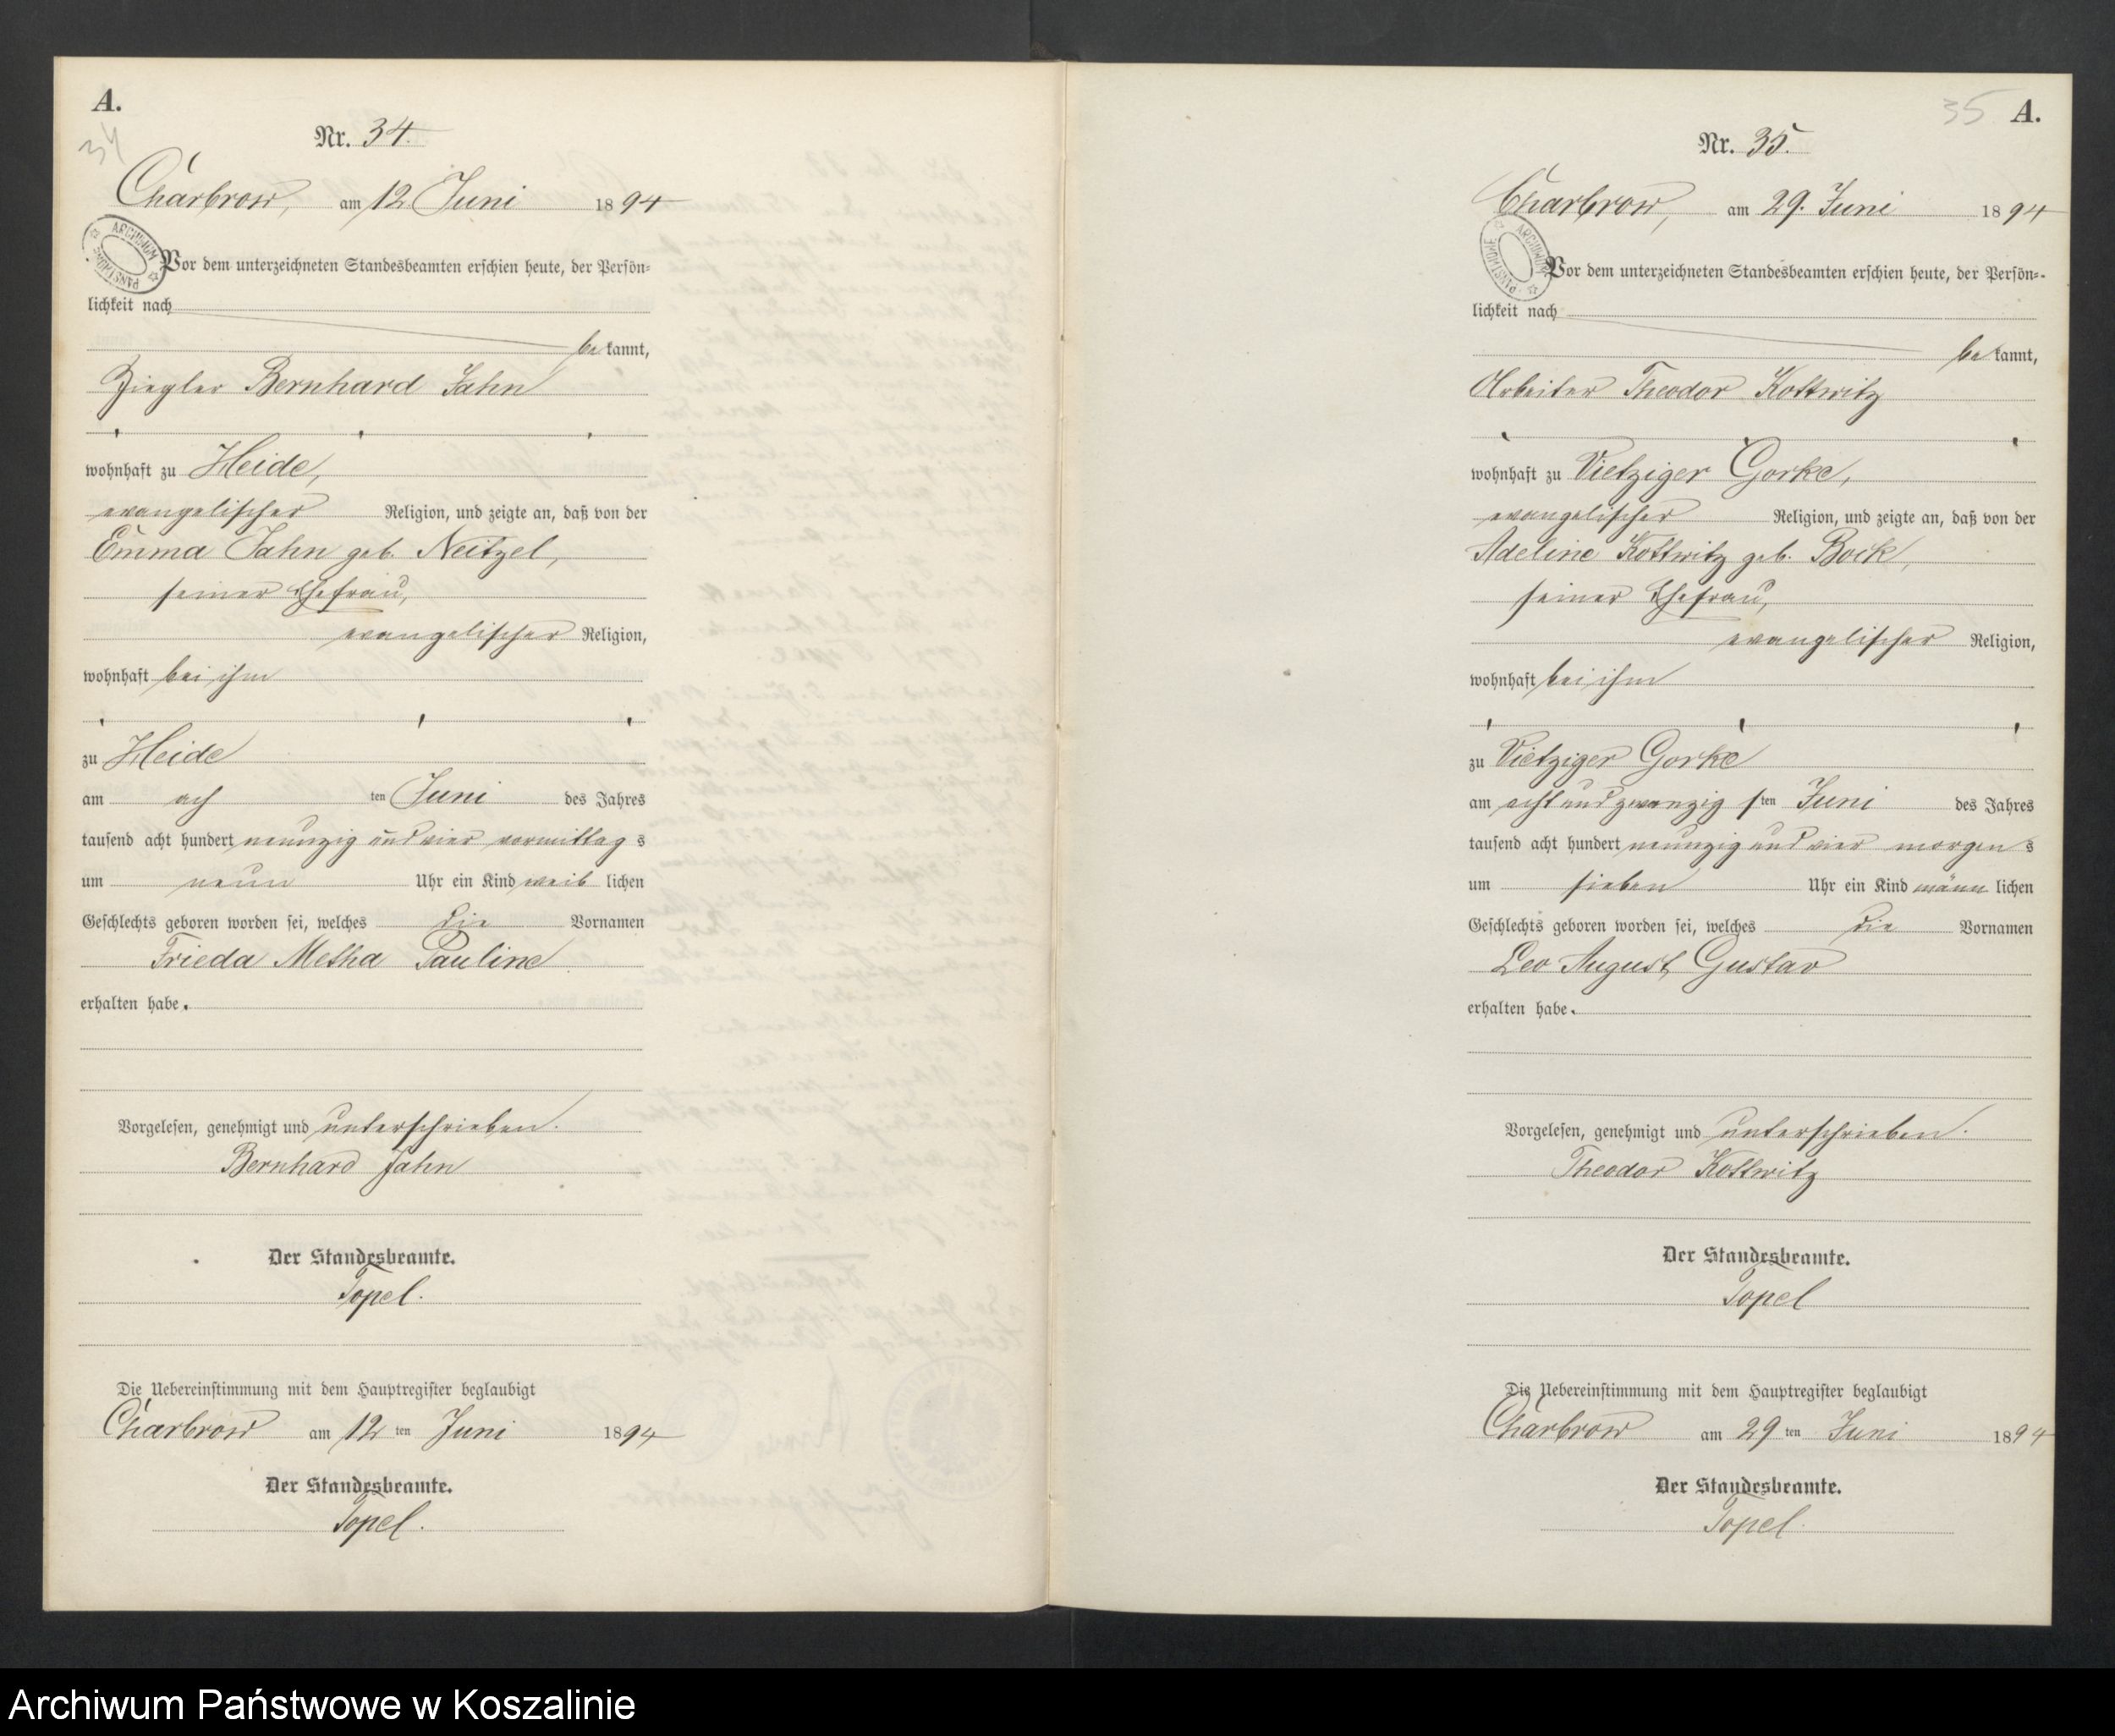 A.
34
Nr. 34.
Charbrow, am 12. Juni 1894
ARCHIWUM PAŃSTWOWE
Vor dem unterzeichneten Standesbeamten erschien heute, der Persön=
lichkeit nach
bekannt,
Ziegler Bernhard Jahn
wohnhaft zu Heide,
evangelischer Religion, und zeigte an, daß von der
Emma Jahn geb. Neitzel,
seiner Ehefrau,
evangelischer Religion,
wohnhaft bei ihm
zu Heide
am ach ten Juni des Jahres
tausend acht hundert neunzig und vier vormittags
um neun Uhr ein Kind weiblichen
Geschlechts geboren worden sei, welches die Vornamen
Frieda Metha Pauline
erhalten habe.
Vorgelesen, genehmigt und unterschrieben.
Bernhard Jahn
Der Standesbeamte.
Topel.
Die Uebereinstimmung mit dem Hauptregister beglaubigt
Charbrow am 12ten Juni 1894
Der Standesbeamte.
Topel.
35 A.
Nr. 35.
Charbrow, am 29. Juni 1894
ARCHIWUM PAŃSTWOWE
Vor dem unterzeichneten Standesbeamten erschien heute, der Persön=
lichkeit nach
bekannt,
Arbeiter Theodor Kottwitz
wohnhaft zu Vietziger Gorke,
evangelischer Religion, und zeigte an, daß von der
Adeline Kottwitz geb. Bock,
seiner Ehefrau,
evangelischer Religion,
wohnhaft bei ihm
zu Vietziger Gorke
am acht und zwanzigsten Juni des Jahres
tausend acht hundert neunzig und vier morgens
um sieben Uhr ein Kind männlichen
Geschlechts geboren worden sei, welches die Vornamen
Leo August Gustav
erhalten habe.
Vorgelesen, genehmigt und unterschrieben.
Theodor Kottwitz
Der Standesbeamte.
Topel
Die Uebereinstimmung mit dem Hauptregister beglaubigt
Charbrow am 29ten Juni 1894
Der Standesbeamte.
Topel.
Archiwum Państwowe w Koszalinie